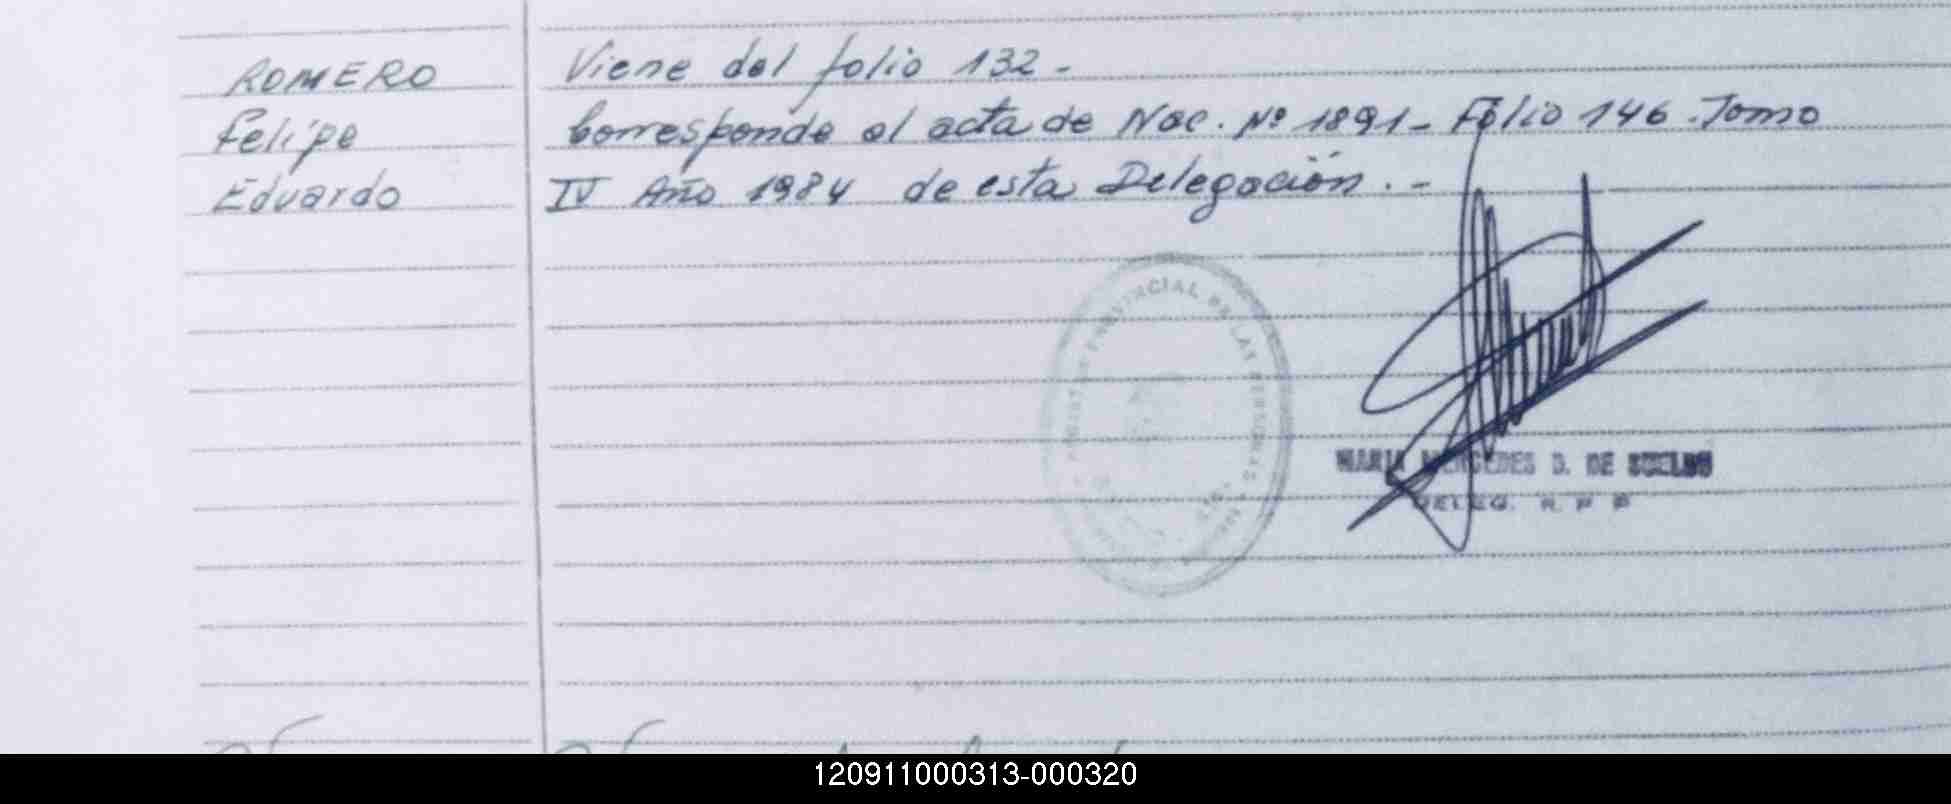 ROMERO
Felipe
Eduardo
Viene del folio 132 -
Corresponde al acta de Nac. Nº 1891 - Folio 146 - Tomo
IV Año 1984 de esta Delegación . -
PROVINCIAL DE LAS PERSONAS
MARIA MERCEDES D. DE
DELEG. R P P
120911000313-000320